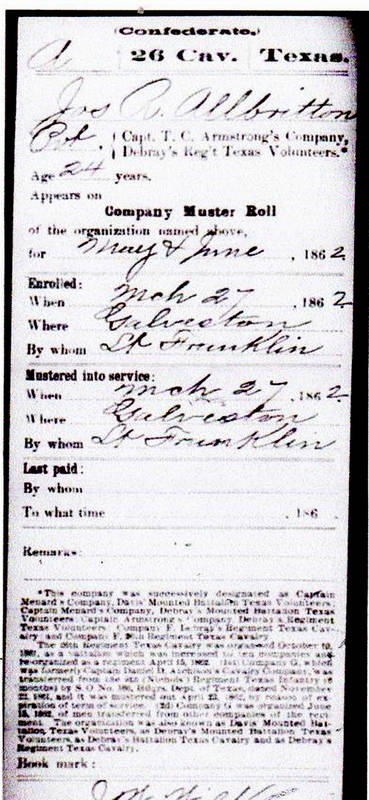 (Confederate.)
A 26 Cav. Texas.
Jos R. Allbritton
Pvt, Capt. T. C. Armstrong's Company,
Debray's Reg't Texas Volunteers.*
Age 24 years.
Appears on
Company Muster Roll
of the organization named above,
for May & June, 1862.
Enrolled:
When Mch 27, 1862.
Where Galveston
By whom Lt Franklin
Mustered into service:
When Mch 27, 1862.
Where Galveston
By whom Lt Franklin
Last paid:
By whom
To what time , 186 .
Remarks:
*This company was successively designated as Captain
Menard's Company, Davis' Mounted Battalion Texas Volunteers;
Captain Menard's Company, Debray's Mounted Battalion Texas
Volunteers; Captain Armstrong's Company, Debray's Regiment
Texas Volunteers; Company F, Debray's Regiment Texas Cav-
alry and Company F, 26th Regiment Texas Cavalry.
The 26th Regiment Texas Cavalry was organized October 10,
1861, as a battalion which was increased to ten companies and
re-organized as a regiment April 15, 1862. (1st) Company G, which
was formerly Captain Daniel D. Atchison's Cavalry Company, was
transferred from the 5th (Nichols') Regiment Texas Infantry (6
months) by S. O. No. Hdqrs. Dept. of Texas, dated November
1861, and it was mustered out April 1862, by reason of ex-
piration of term of service. (2d) Company G was organized June
15, 1862, of men transferred from other companies of the regi-
ment. The organization was also known as Davis Mounted Bat-
talion, Texas Volunteers, as Debray's Mounted Battalion Texas
Volunteers, as Debray's Battalion Texas Cavalry and as Debray's
Regiment Texas Cavalry.
Book mark: